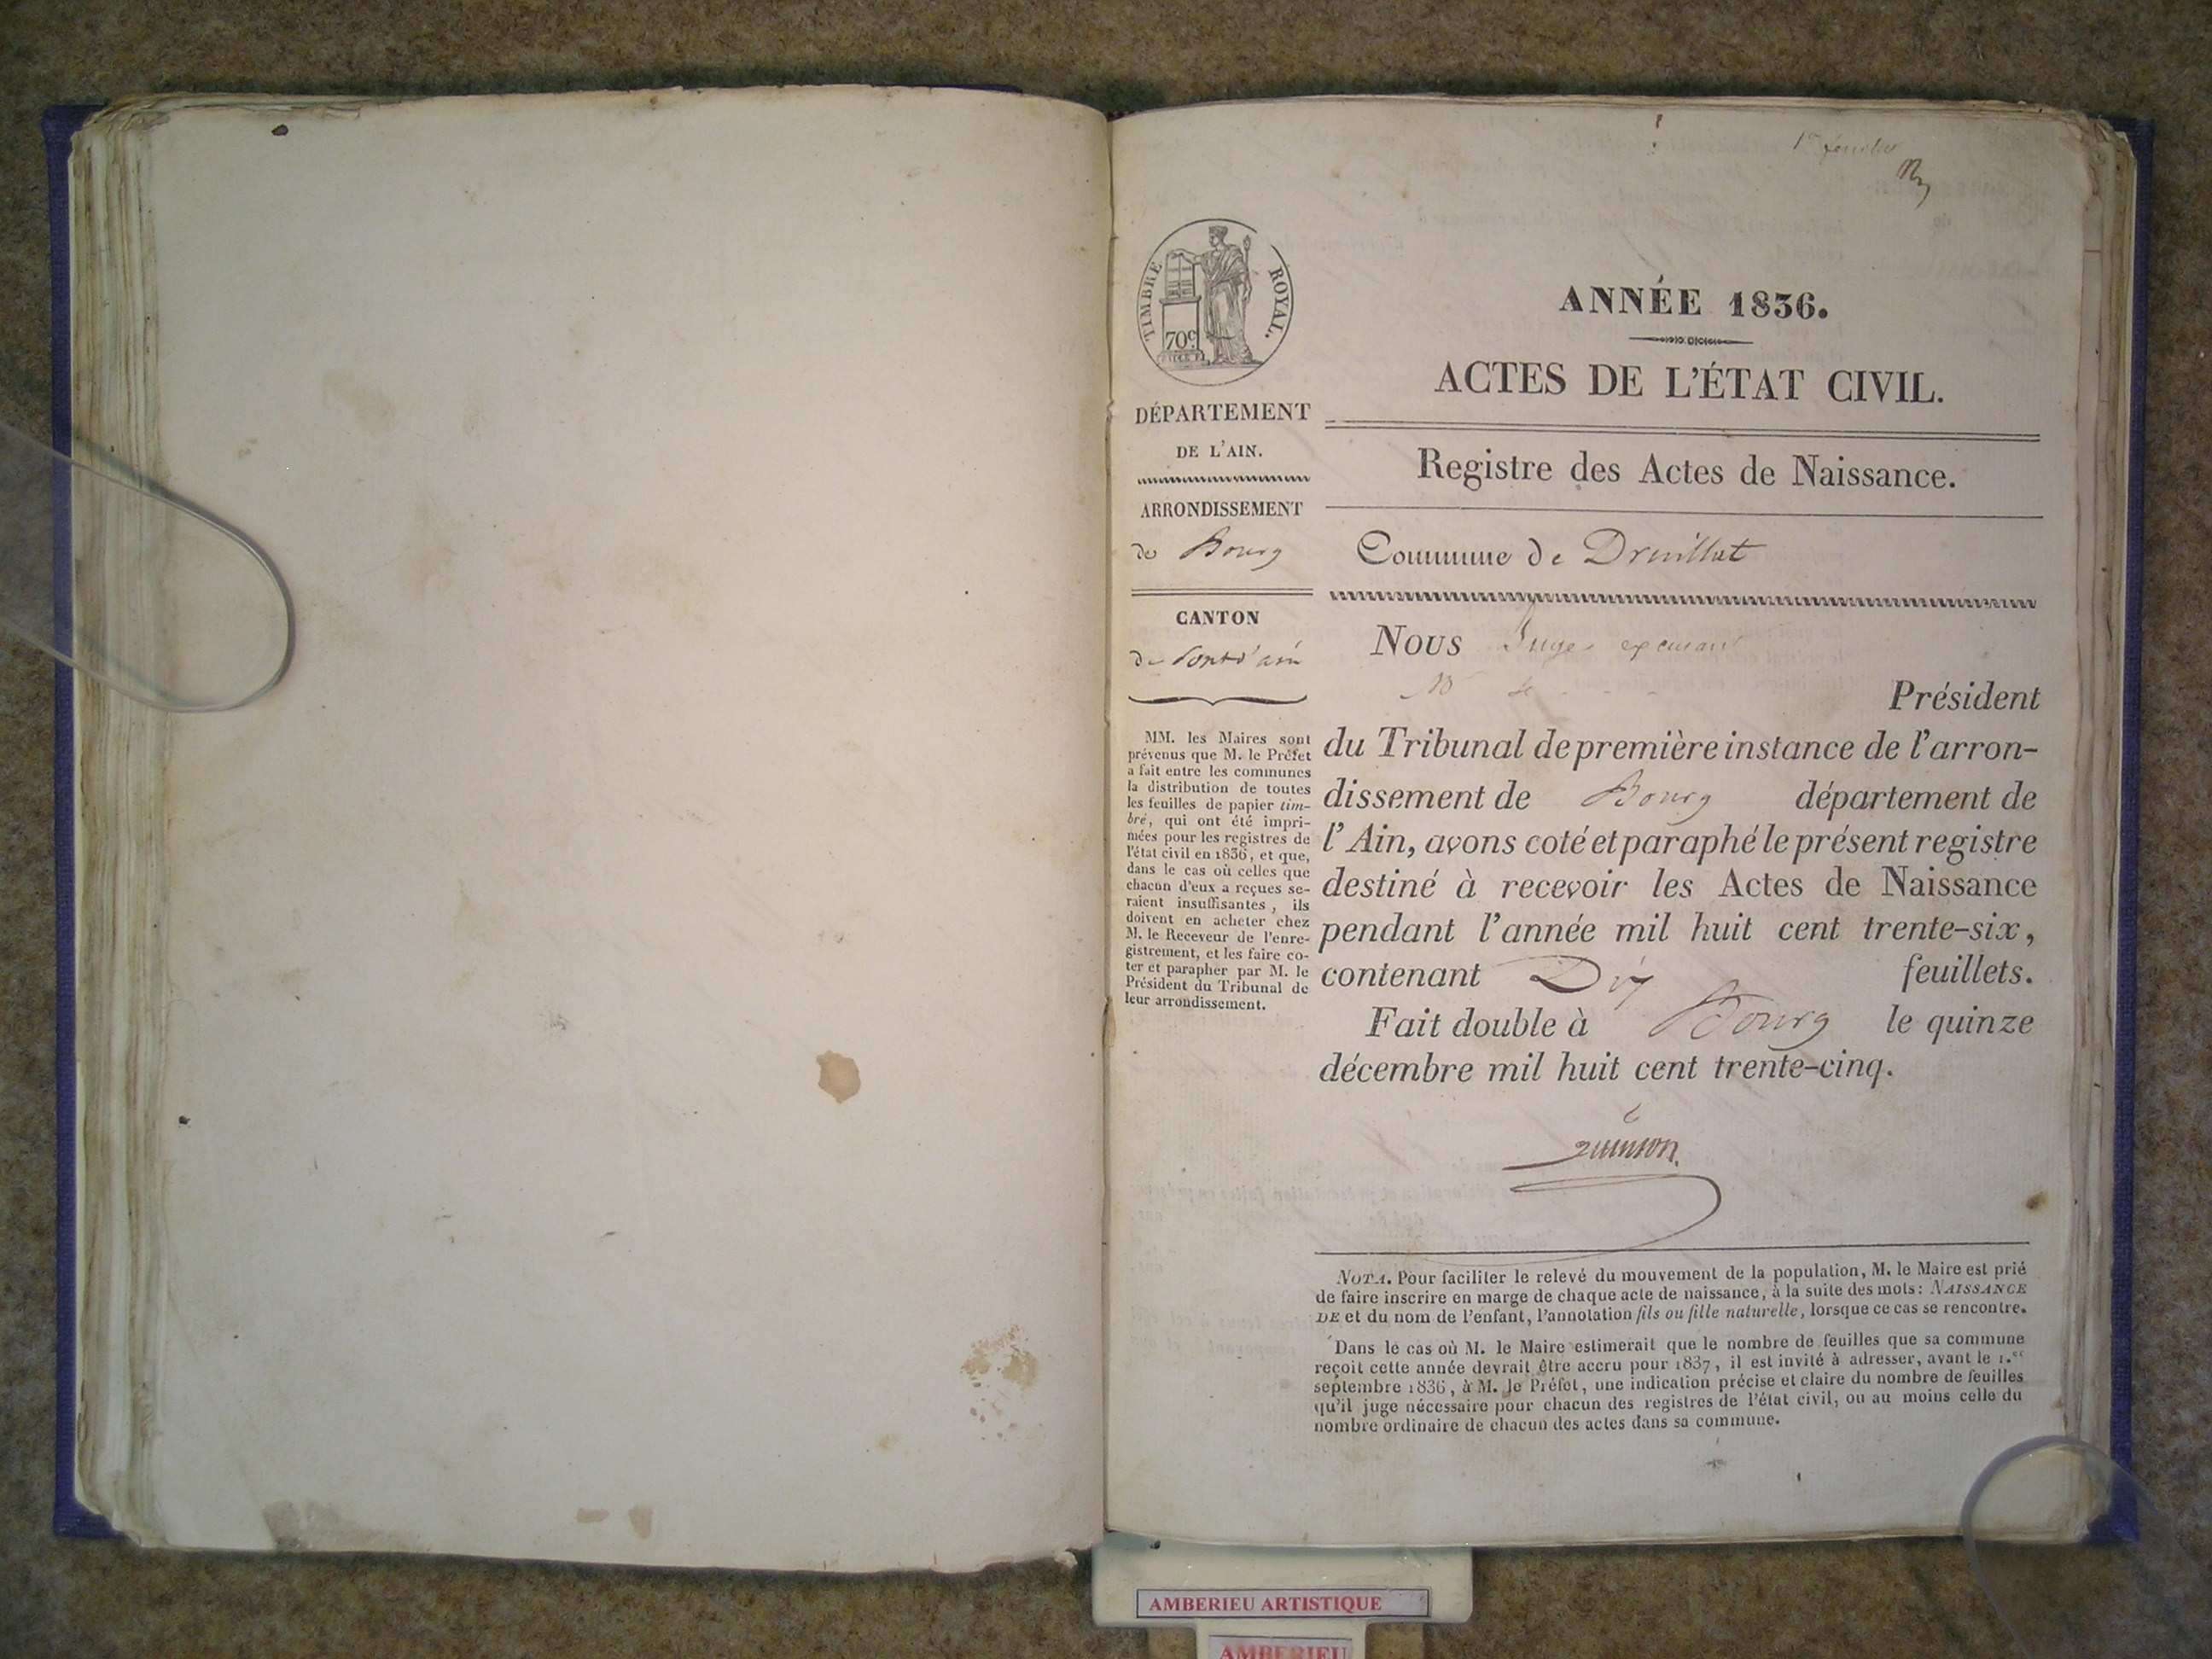 1er feuillet
TIMBRE ROYAL.
70c
ANNÉE 1836.
ACTES DE L'ÉTAT CIVIL.
Registre des Actes de Naissance.
DÉPARTEMENT
DE L'AIN.
ARRONDISSEMENT
de Bourg
CANTON
de Pont d'ain
MM. les Maires sont
prévenus que M. le Préfet
a fait entre les communes
la distribution de toutes
les feuilles de papier tim-
bré, qui ont été impri-
mées pour les registres de
l'état civil en 1836, et que,
dans le cas où celles que
chacun d'eux a reçues se-
raient insuffisantes, ils
doivent en acheter chez
M. le Receveur de l'enre-
gistrement, et les faire co-
ter et parapher par M. le
Président du Tribunal de
leur arrondissement.
Commune de Druillat
Nous Juge
Président
du Tribunal de première instance de l'arron-
dissement de Bourg département de
l'Ain, avons coté et paraphé le présent registre
destiné à recevoir les Actes de Naissance
pendant l'année mil huit cent trente-six,
contenant Dix feuillets.
Fait double à Bourg le quinze
décembre mil huit cent trente-cinq.
quinson
NOTA. Pour faciliter le relevé du mouvement de la population, M. le Maire est prié
de faire inscrire en marge de chaque acte de naissance, à la suite des mots: NAISSANCE
DE et du nom de l'enfant, l'annotation fils ou fille naturelle, lorsque ce cas se rencontre.
Dans le cas où M. le Maire estimerait que le nombre de feuilles que sa commune
reçoit cette année devrait être accru pour 1837, il est invité à adresser, avant le 1.er
septembre 1836, à M. le Préfet, une indication précise et claire du nombre de feuilles
qu'il juge nécessaire pour chacun des registres de l'état civil, ou au moins celle du
nombre ordinaire de chacun des actes dans sa commune.
AMBERIEU ARTISTIQUE
AMBERIEU